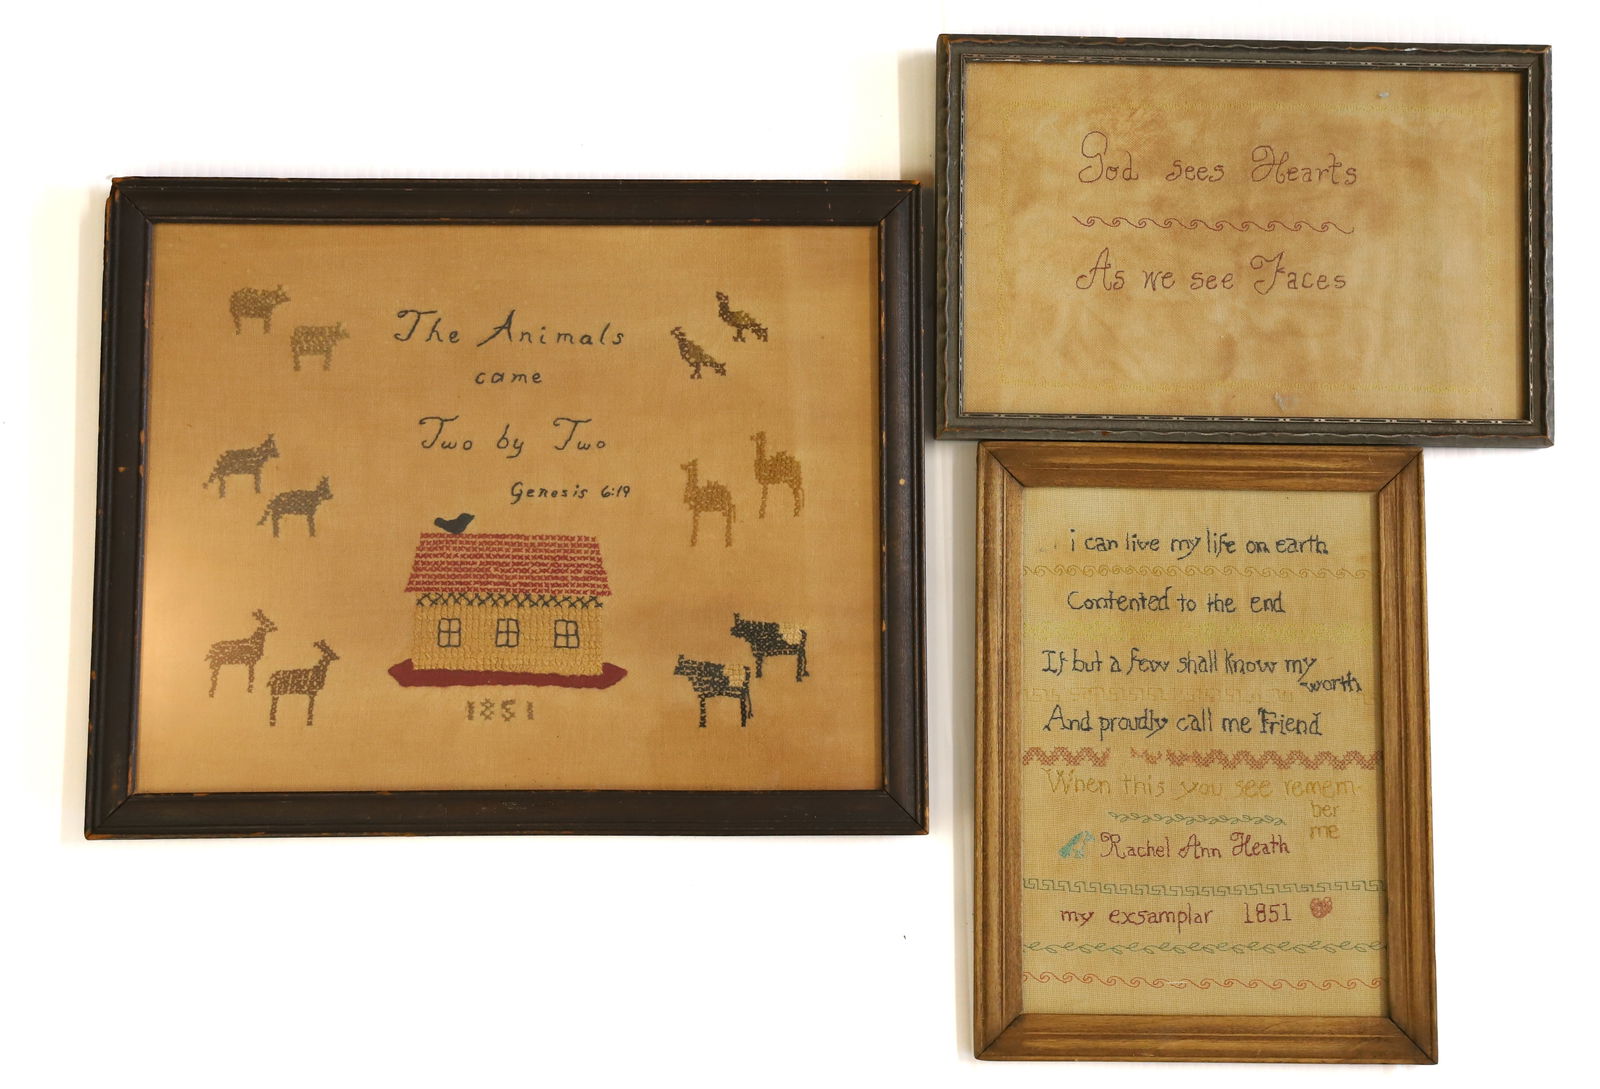 The Animals
came
Two by Two
Genesis 6:19
1851
God sees Hearts
As we see Faces
i can live my life on earth
Contented to the end
If but a few shall know my
worth
And proudly call me Friend
When this you see remem-
ber
me
Rachel Ann Heath
my exsamplar 1851